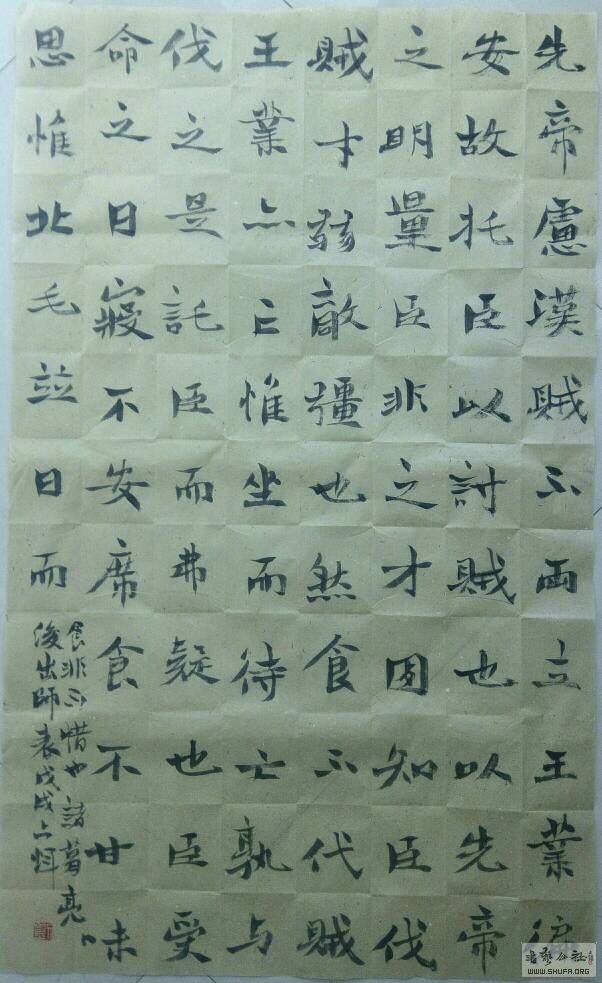 先帝慮漢賊不兩立王業
安故托臣以討賊也以先帝
之明量臣非之才固知臣伐
賊才弱敵彊也然食不代賊
王業亦亡惟坐而待亡孰与
伐之是託臣而弗疑也臣受
命之日寢不安席食不甘味
思惟北毛並日而
食非不惜也諸葛亮
後出師表戊戌
書藝公社
WWW.SHUFA.ORG